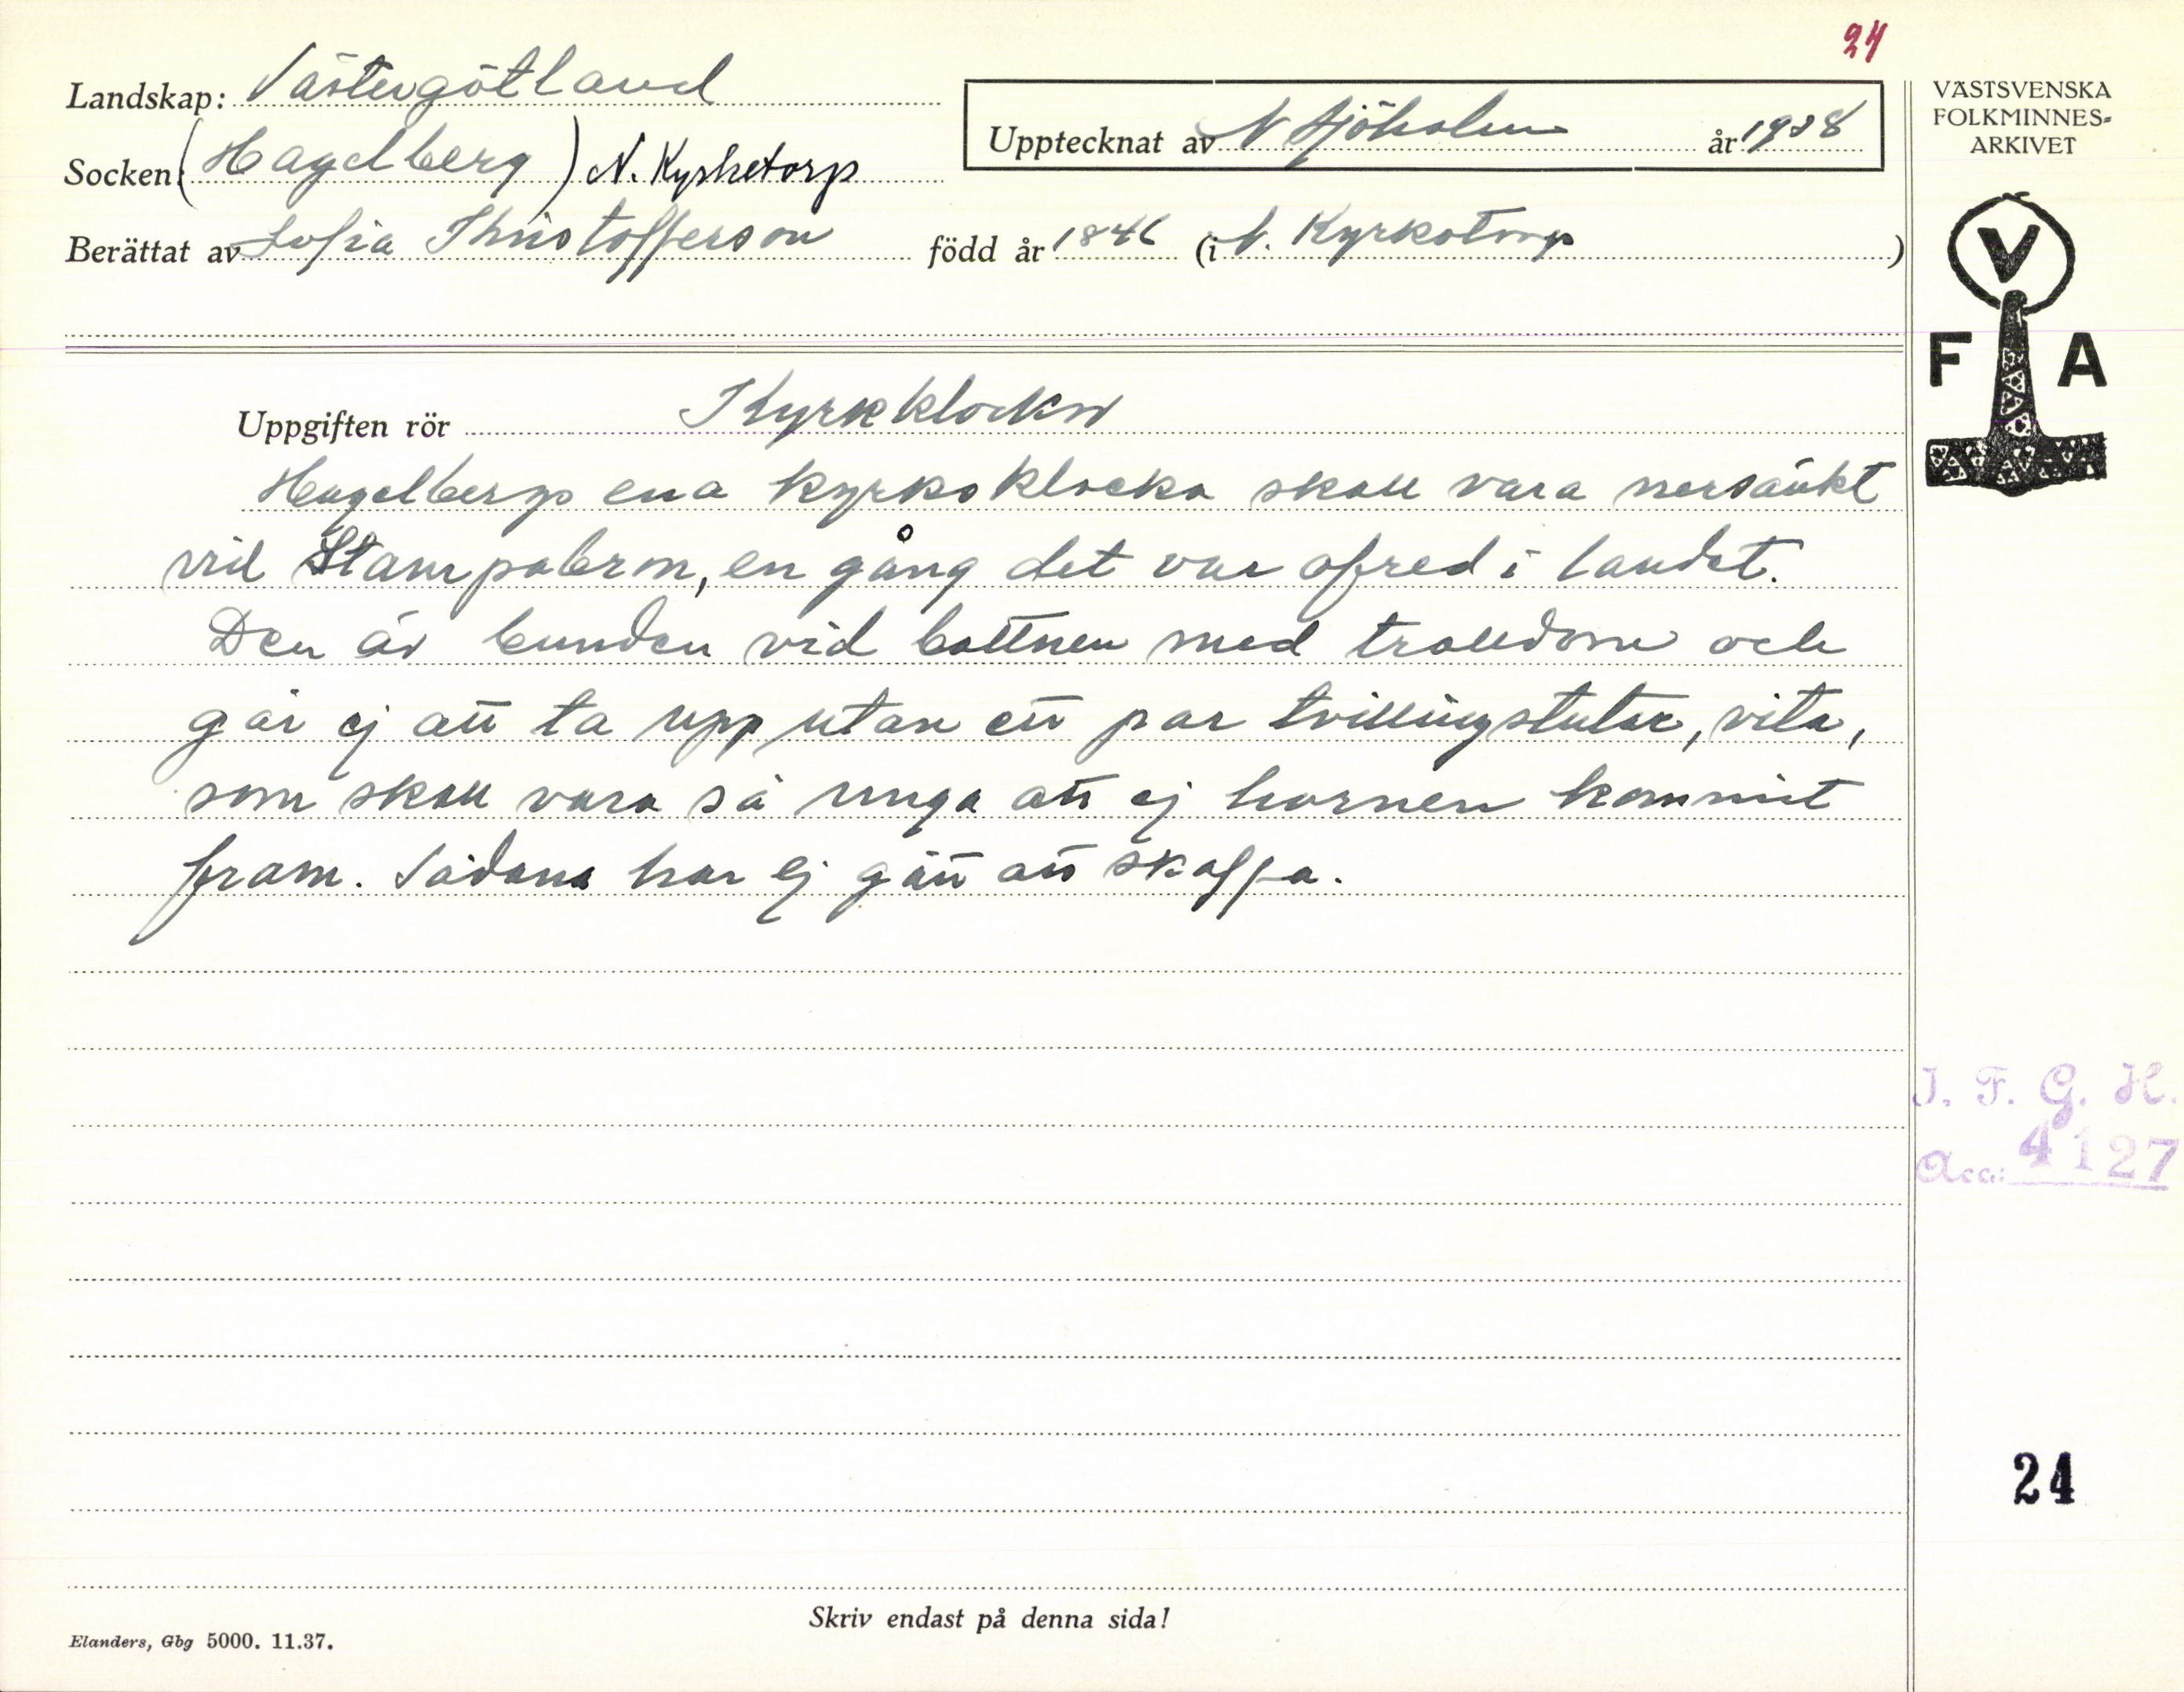 24
Landskap: Västergötland
Socken: (Hagelberg) N. Kyrketorp
Upptecknat av N Sjöholm år 1938
Berättat av Sofia Kristofferson född år 1846 (i N. Kyrketorp)
VÄSTSVENSKA
FOLKMINNES-
ARKIVET
V
F A
Uppgiften rör Kyrkklockor
Hagelbergs ena kyrkoklocka skall vara nersänkt
vid Stampabron, en gång det var ofred i landet.
Den är bunden vid bottnen med trolldom och
går ej att ta upp utan ett par tvillingstutar, vita,
som skall vara så unga att ej hornen kommit
fram. Sådana har ej gått att skaffa.
I. F. G. H.
Acc: 4127
24
Skriv endast på denna sida!
Elanders, Gbg 5000. 11.37.